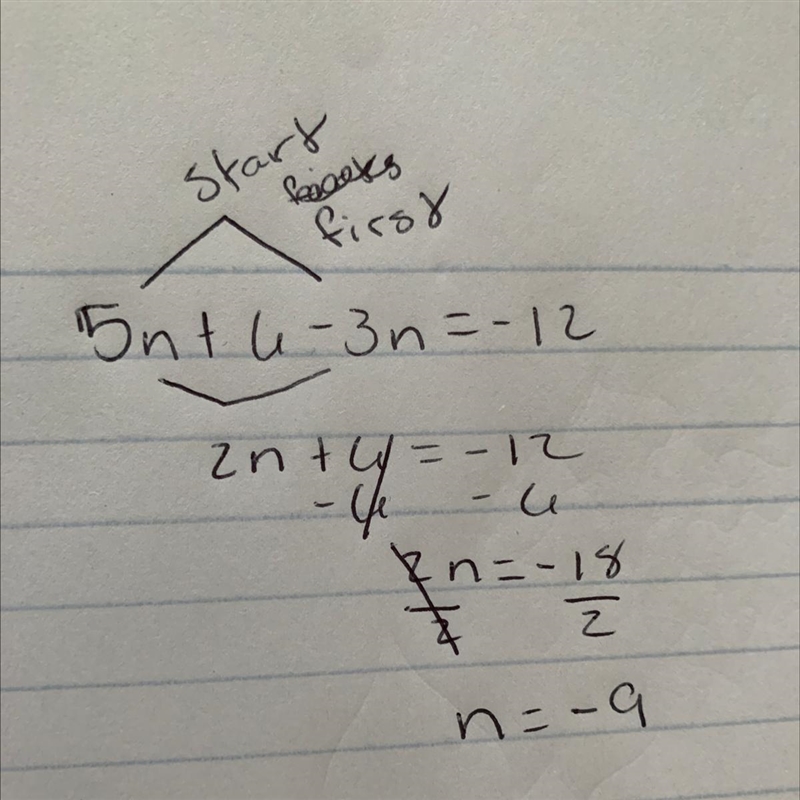 start
first
5n + 6 - 3n = -12
2n + 6 = -12
- 6 - 6
2n = -18
2 2
n = -9